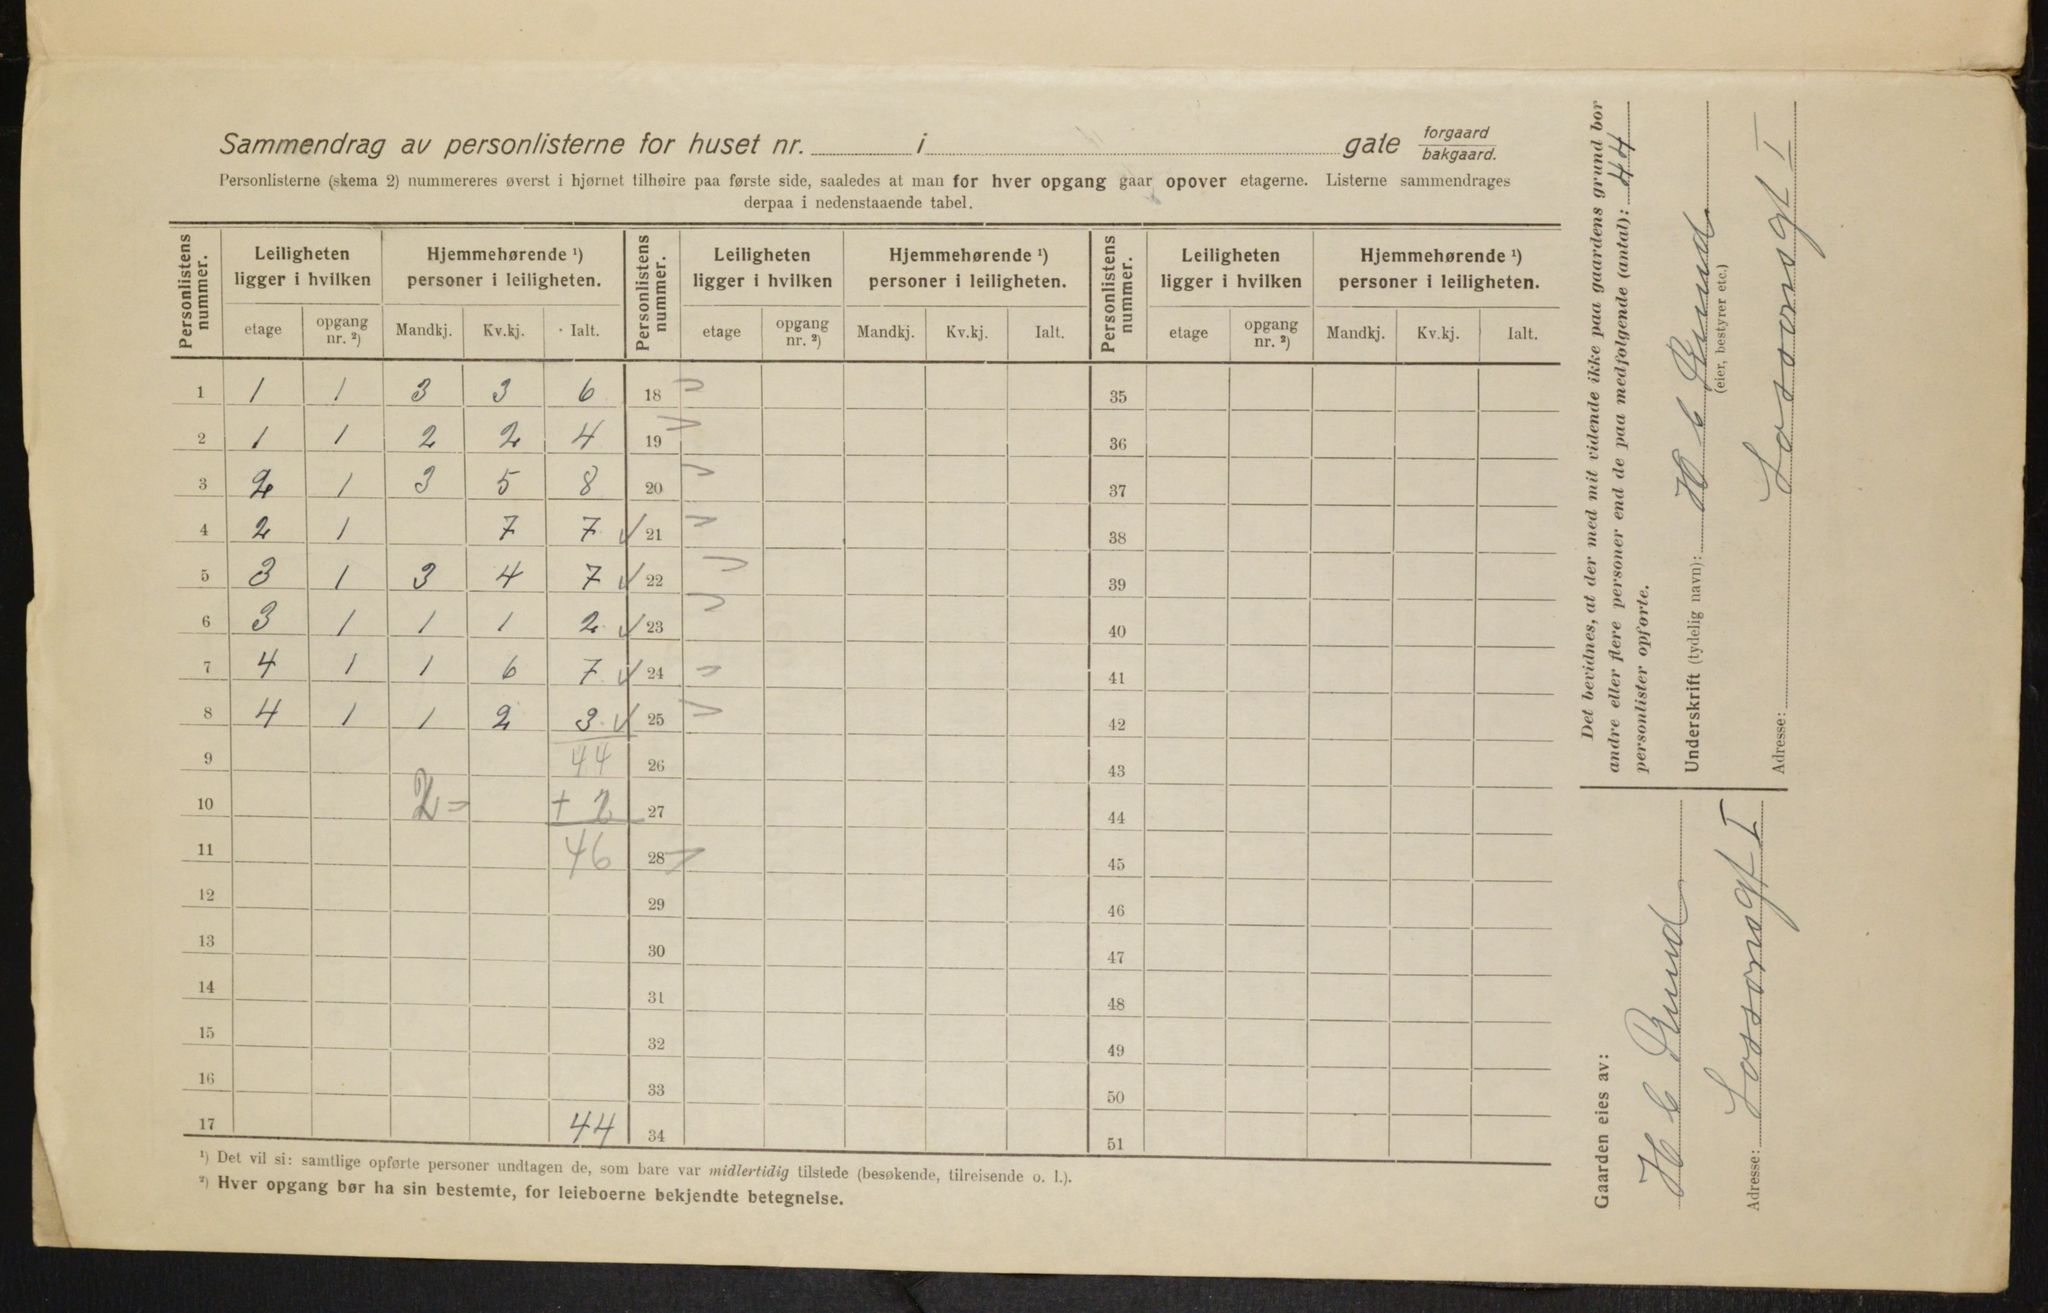 Sammendrag av personlisterne for huset nr. i gate forgaard bakgaard.
Personlisterne (skema 2) nummereres øverst i hjørnet tilhøire paa første side, saaledes at man for hver opgang gaar opover etagerne. Listerne sammendrages
derpaa i nedenstaaende tabel.
Personlistens nummer. Leiligheten ligger i hvilken Hjemmehørende ¹) personer i leiligheten. Personlistens nummer. Leiligheten ligger i hvilken Hjemmehørende ¹) personer i leiligheten. Personlistens nummer. Leiligheten ligger i hvilken Hjemmehørende ¹) personer i leiligheten.
etage opgang nr. ²) Mandkj. Kv.kj. Ialt. etage opgang nr. ²) Mandkj. Kv.kj. Ialt. etage opgang nr. ²) Mandkj. Kv.kj. Ialt.
1 1 1 3 3 6 18 35
2 1 1 2 2 4 19 36
3 2 1 3 5 8 20 37
4 2 1 7 7 21 38
5 3 1 3 4 7 22 39
6 3 1 1 1 2 23 40
7 4 1 1 6 7 24 41
8 4 1 1 2 3 25 42
9 44 26 43
10 2= + 2 27 44
11 46 28 45
12 29 46
13 30 47
14 31 48
15 32 49
16 33 50
17 44 34 51
¹) Det vil si: samtlige opførte personer undtagen de, som bare var midlertidig tilstede (besøkende, tilreisende o. l.).
²) Hver opgang bør ha sin bestemte, for leieboerne bekjendte betegnelse.
Det bevidnes, at der med mit vidende ikke paa gaardens grund bor
andre eller flere personer end de paa medfølgende (antal): 44
personlister opførte.
Underskrift (tydelig navn): H C Ruud
(eier, bestyrer etc.)
Adresse: I
Gaarden eies av:
H C Ruud
Adresse: I